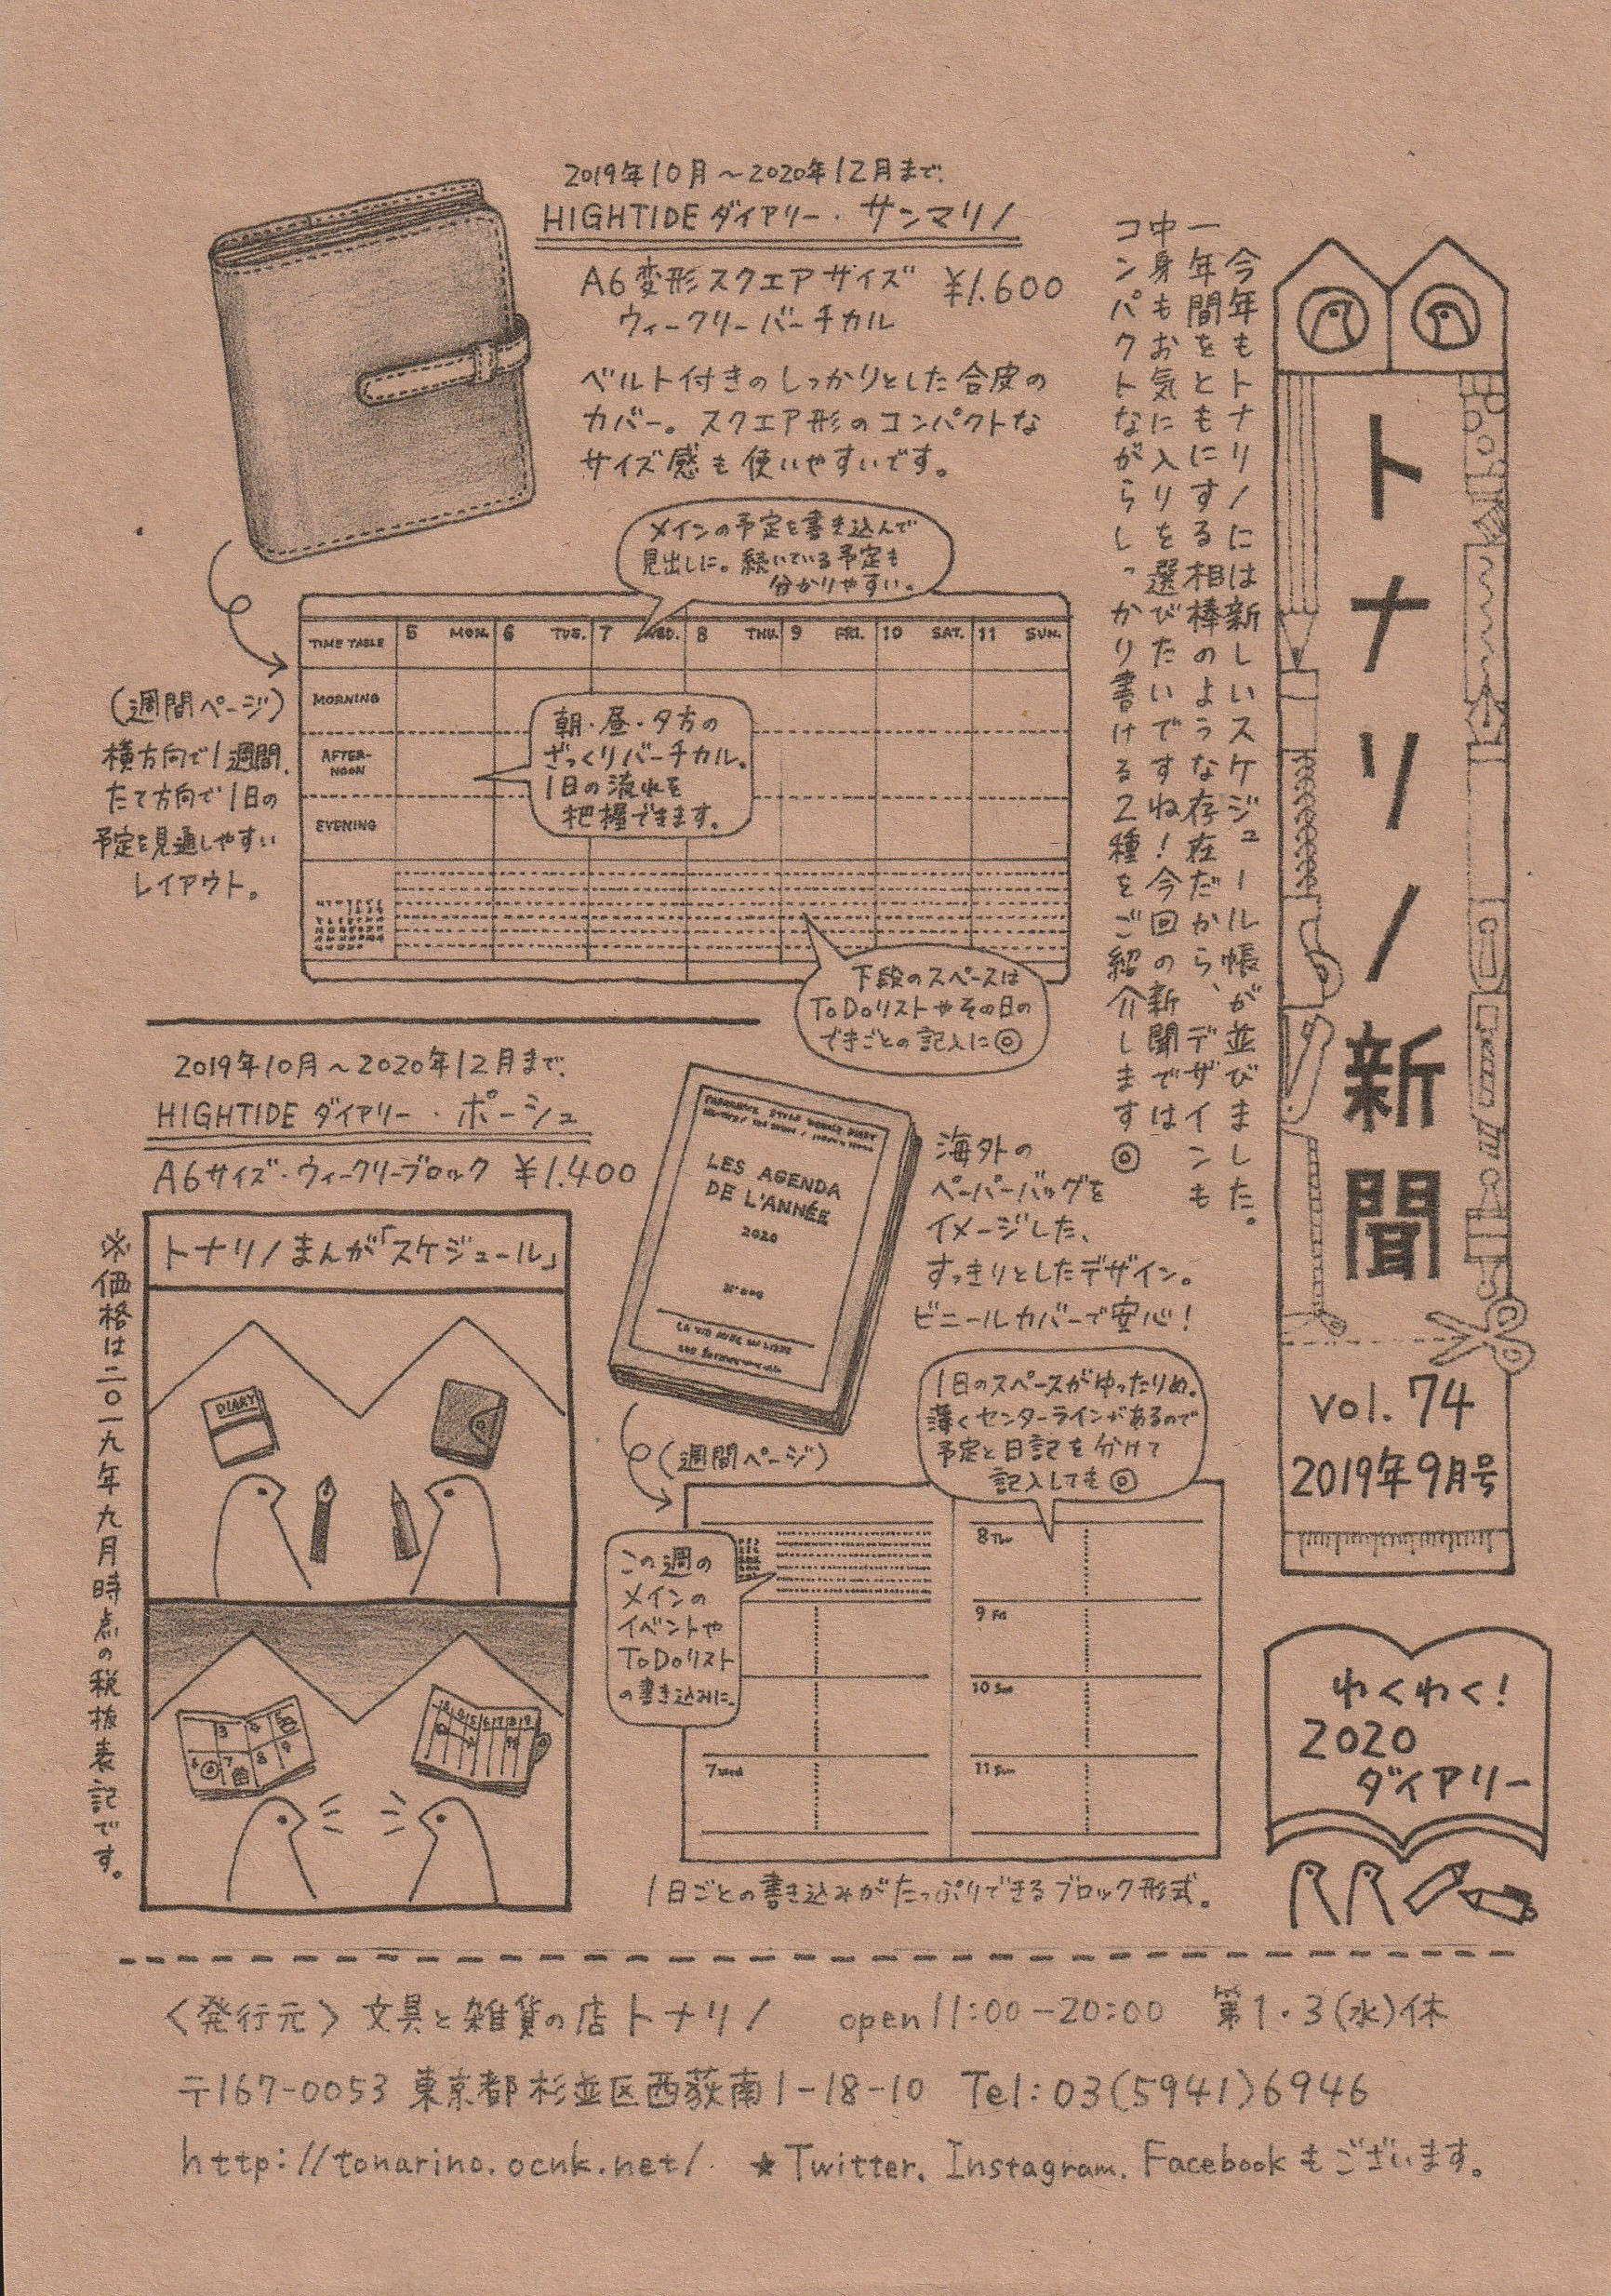 トナリノ新聞
vol.74
2019年9月号
わくわく!
2020
ダイアリー
今年もトナリノには新しいスケジュール帳が並びました。
一年間をともにする相棒のような存在だから、デザインも
中身もお気に入りを選びたいですね!今回の新聞では
コンパクトながらしっかり書ける2種をご紹介します◎
2019年10月~2020年12月まで.
HIGHTIDE ダイアリー・サンマリノ
A6変形スクエアサイズ ¥1.600
ウィークリーバーチカル
ベルト付きのしっかりとした合皮の
カバー。スクエア形のコンパクトな
サイズ感も使いやすいです。
メインの予定を書き込んで
見出しに。続いている予定も
分かりやすい。
TIME TABLE
5 MON.
6 TUE.
7 WED.
8 THU.
9 FRI.
10 SAT.
11 SUN.
MORNING
AFTER-
NOON
EVENING
朝・昼・夕方の
ざっくりバーチカル。
1日の流れを
把握できます。
(週間ページ)
横方向で1週間、
たて方向で1日の
予定を見通しやすい
レイアウト。
下段のスペースは
ToDoリストやその日の
できごとの記入に◎
2019年10月~2020年12月まで.
HIGHTIDE ダイアリー・ポーシュ
A6サイズ・ウィークリーブロック ¥1.400
LES AGENDA
DE L'ANNÉE
2020
海外の
ペーパーバッグを
イメージした、
すっきりとしたデザイン。
ビニールカバーで安心!
(週間ページ)
1日のスペースがゆったりめ。
薄くセンターラインがあるので
予定と日記を分けて
記入しても◎
この週の
メインの
イベントや
ToDoリスト
の書き込みに。
7 Wed
8 Thu
9 Fri
10 Sat
11 Sun
1日ごとの書き込みがたっぷりできるブロック形式。
トナリノまんが「スケジュール」
DIARY
※価格は二〇一九年九月時点の税抜表記です。
<発行元> 文具と雑貨の店トナリノ open 11:00-20:00 第1・3(水)休
〒167-0053 東京都杉並区西荻南1-18-10 Tel:03(5941)6946
http://tonarino.ocnk.net/. ★Twitter. Instagram. Facebookもございます。